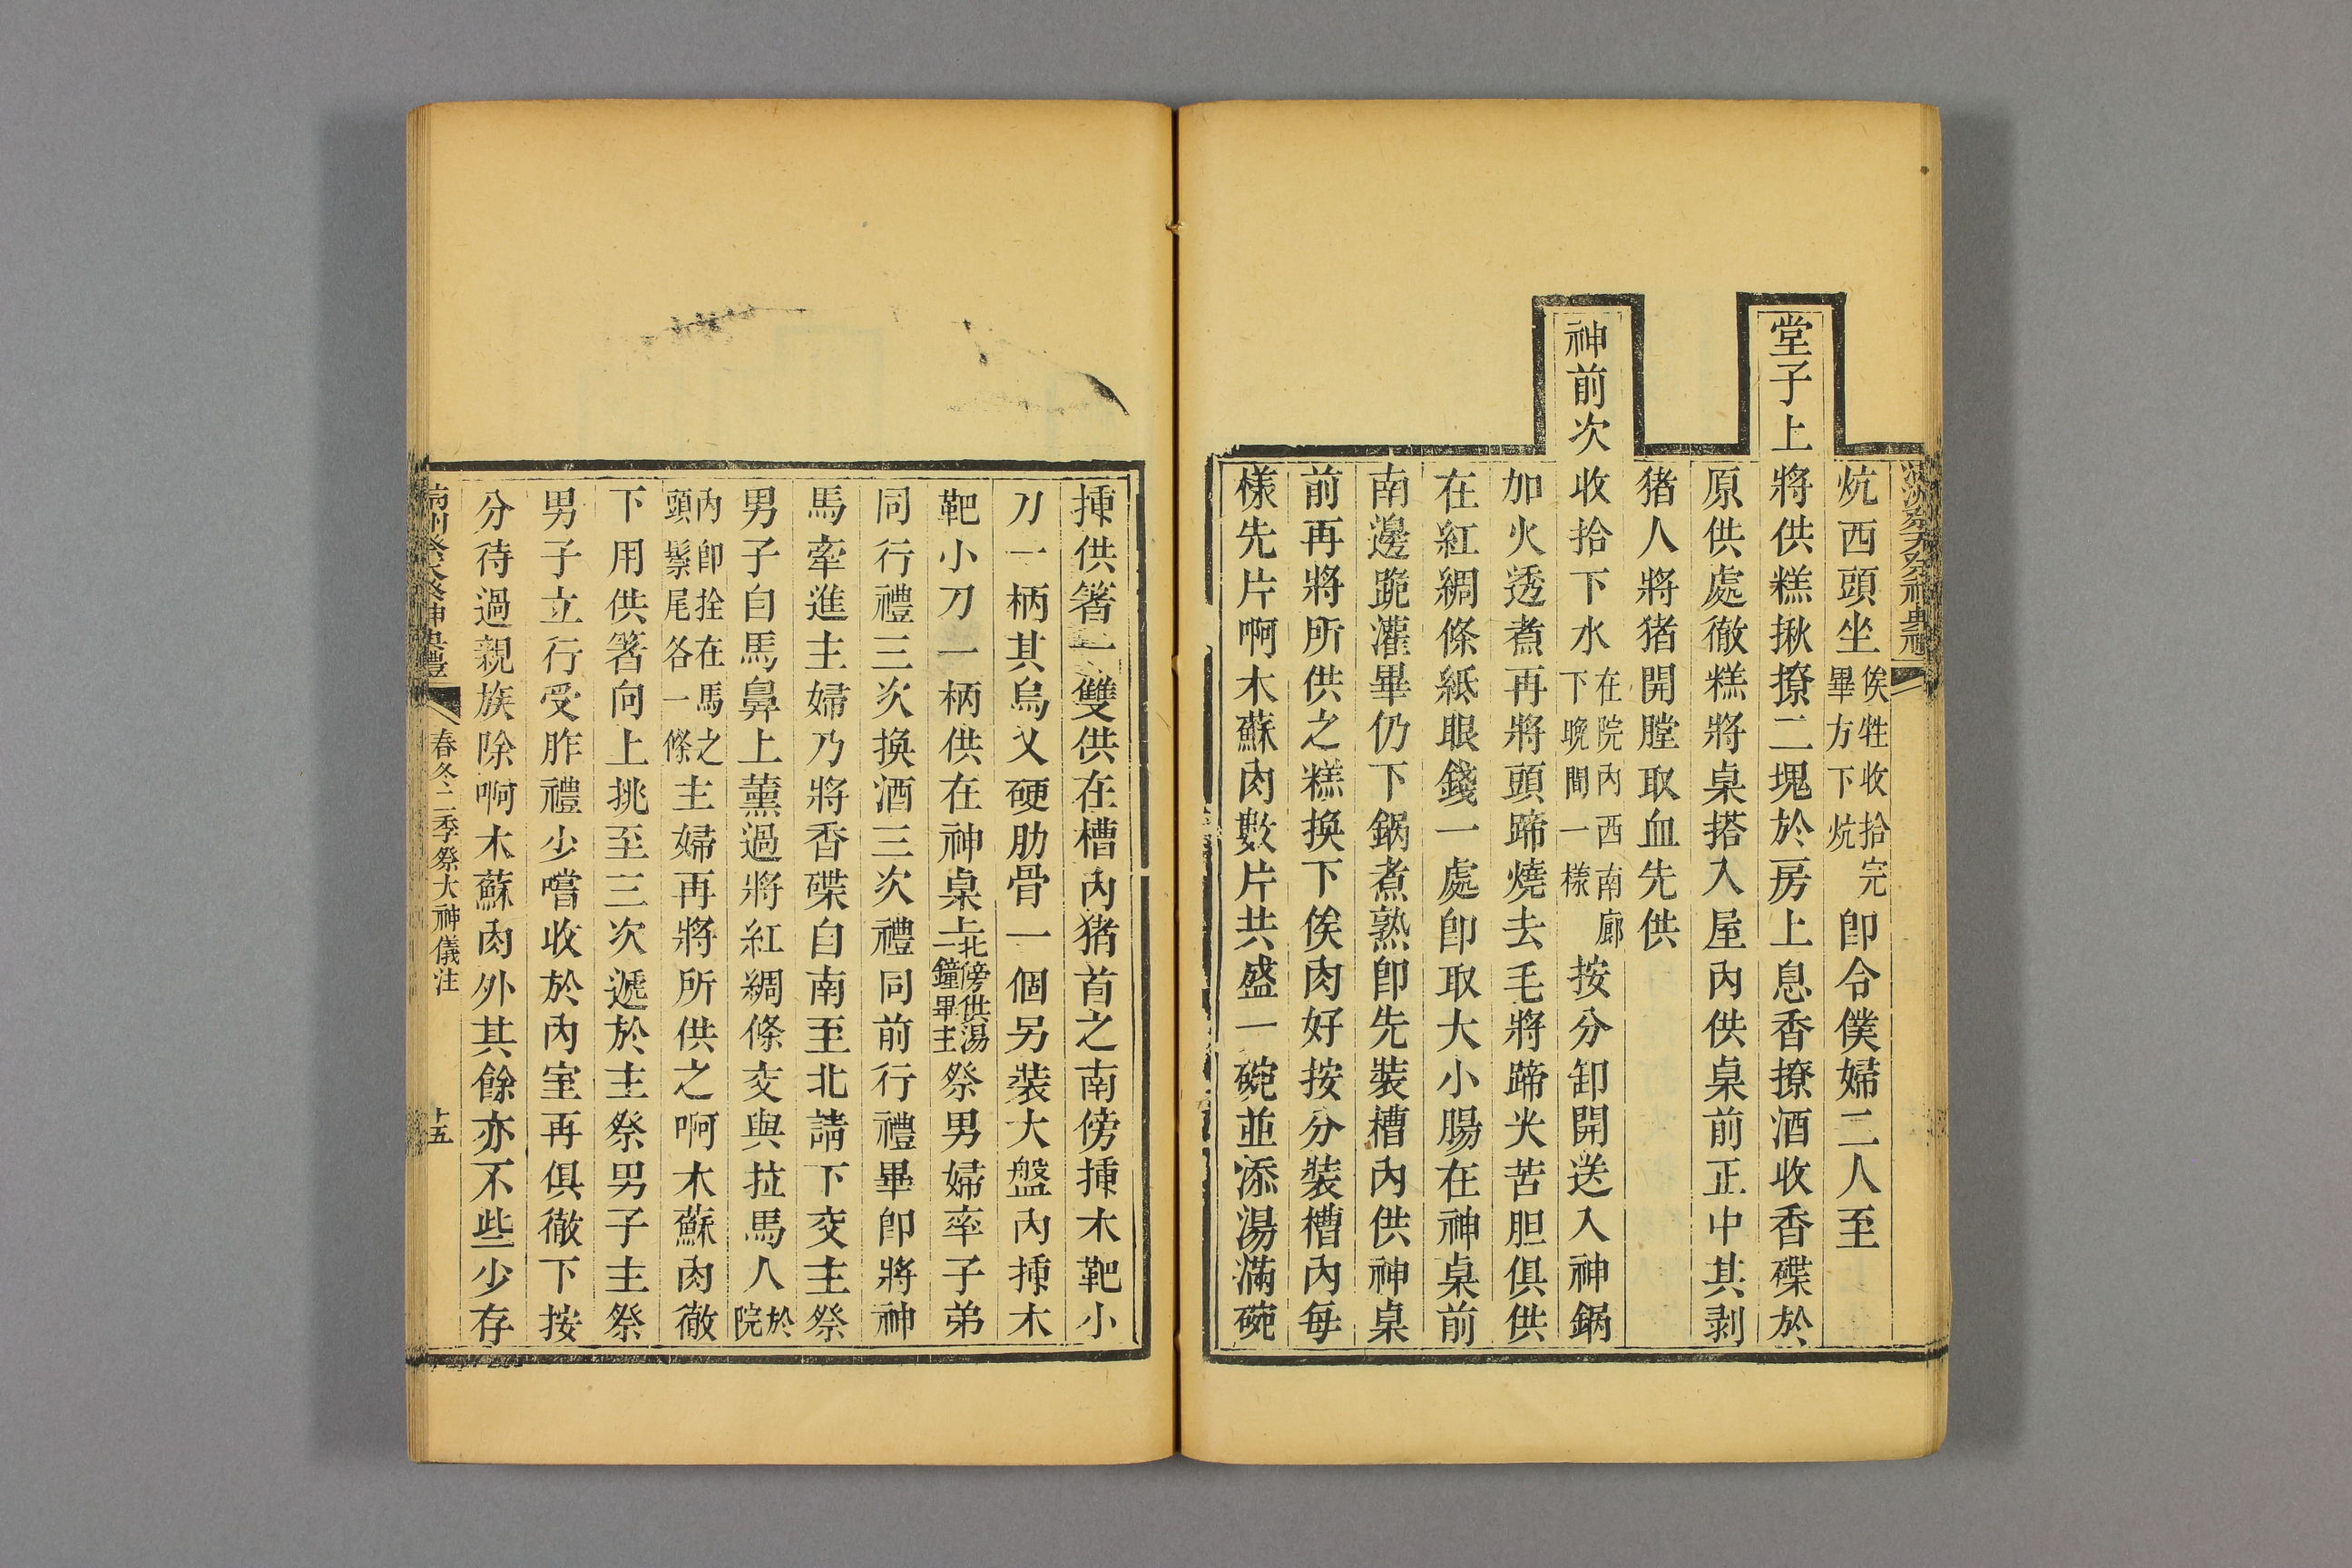 滿洲祭天祭神典禮
炕西頭坐俟牲收拾完畢方下炕卽令僕婦二人至
堂子上將供糕揪撩二塊於房上息香撩酒收香碟於
原供處徹糕將桌搭入屋內供桌前正中其剥
猪人將猪開膛取血先供
神前次收拾下水在院內西南廊下晚間一樣按分卸開送入神鍋
加火透煮再將頭蹄燒去毛將蹄尖苦胆俱供
在紅綢條紙眼錢一處卽取大小腸在神桌前
南邊跪灌畢仍下鍋煮熟卽先裝槽內供神桌
前再將所供之糕換下俟肉好按分裝槽內每
樣先片啊木蘇肉數片共盛一碗並添湯滿碗
揷供箸一雙供在槽內猪首之南傍揷木靶小
刀一柄其烏乂硬肋骨一個另裝大盤內揷木
靶小刀一柄供在神桌上北傍供湯一鐘畢主祭男婦率子弟
同行禮三次換酒三次禮同前行禮畢卽將神
馬牽進主婦乃將香碟自南至北請下交主祭
男子自馬鼻上薰過將紅綢條交與拉馬人於院
內卽拴在馬之頭鬃尾各一條主婦再將所供之啊木蘇肉徹
下用供箸向上挑至三次遞於主祭男子主祭
男子立行受胙禮少嚐收於內室再俱徹下按
分待過親族除啊木蘇肉外其餘亦不些少存
滿洲祭天祭神典禮
春冬二季祭大神儀注
十五